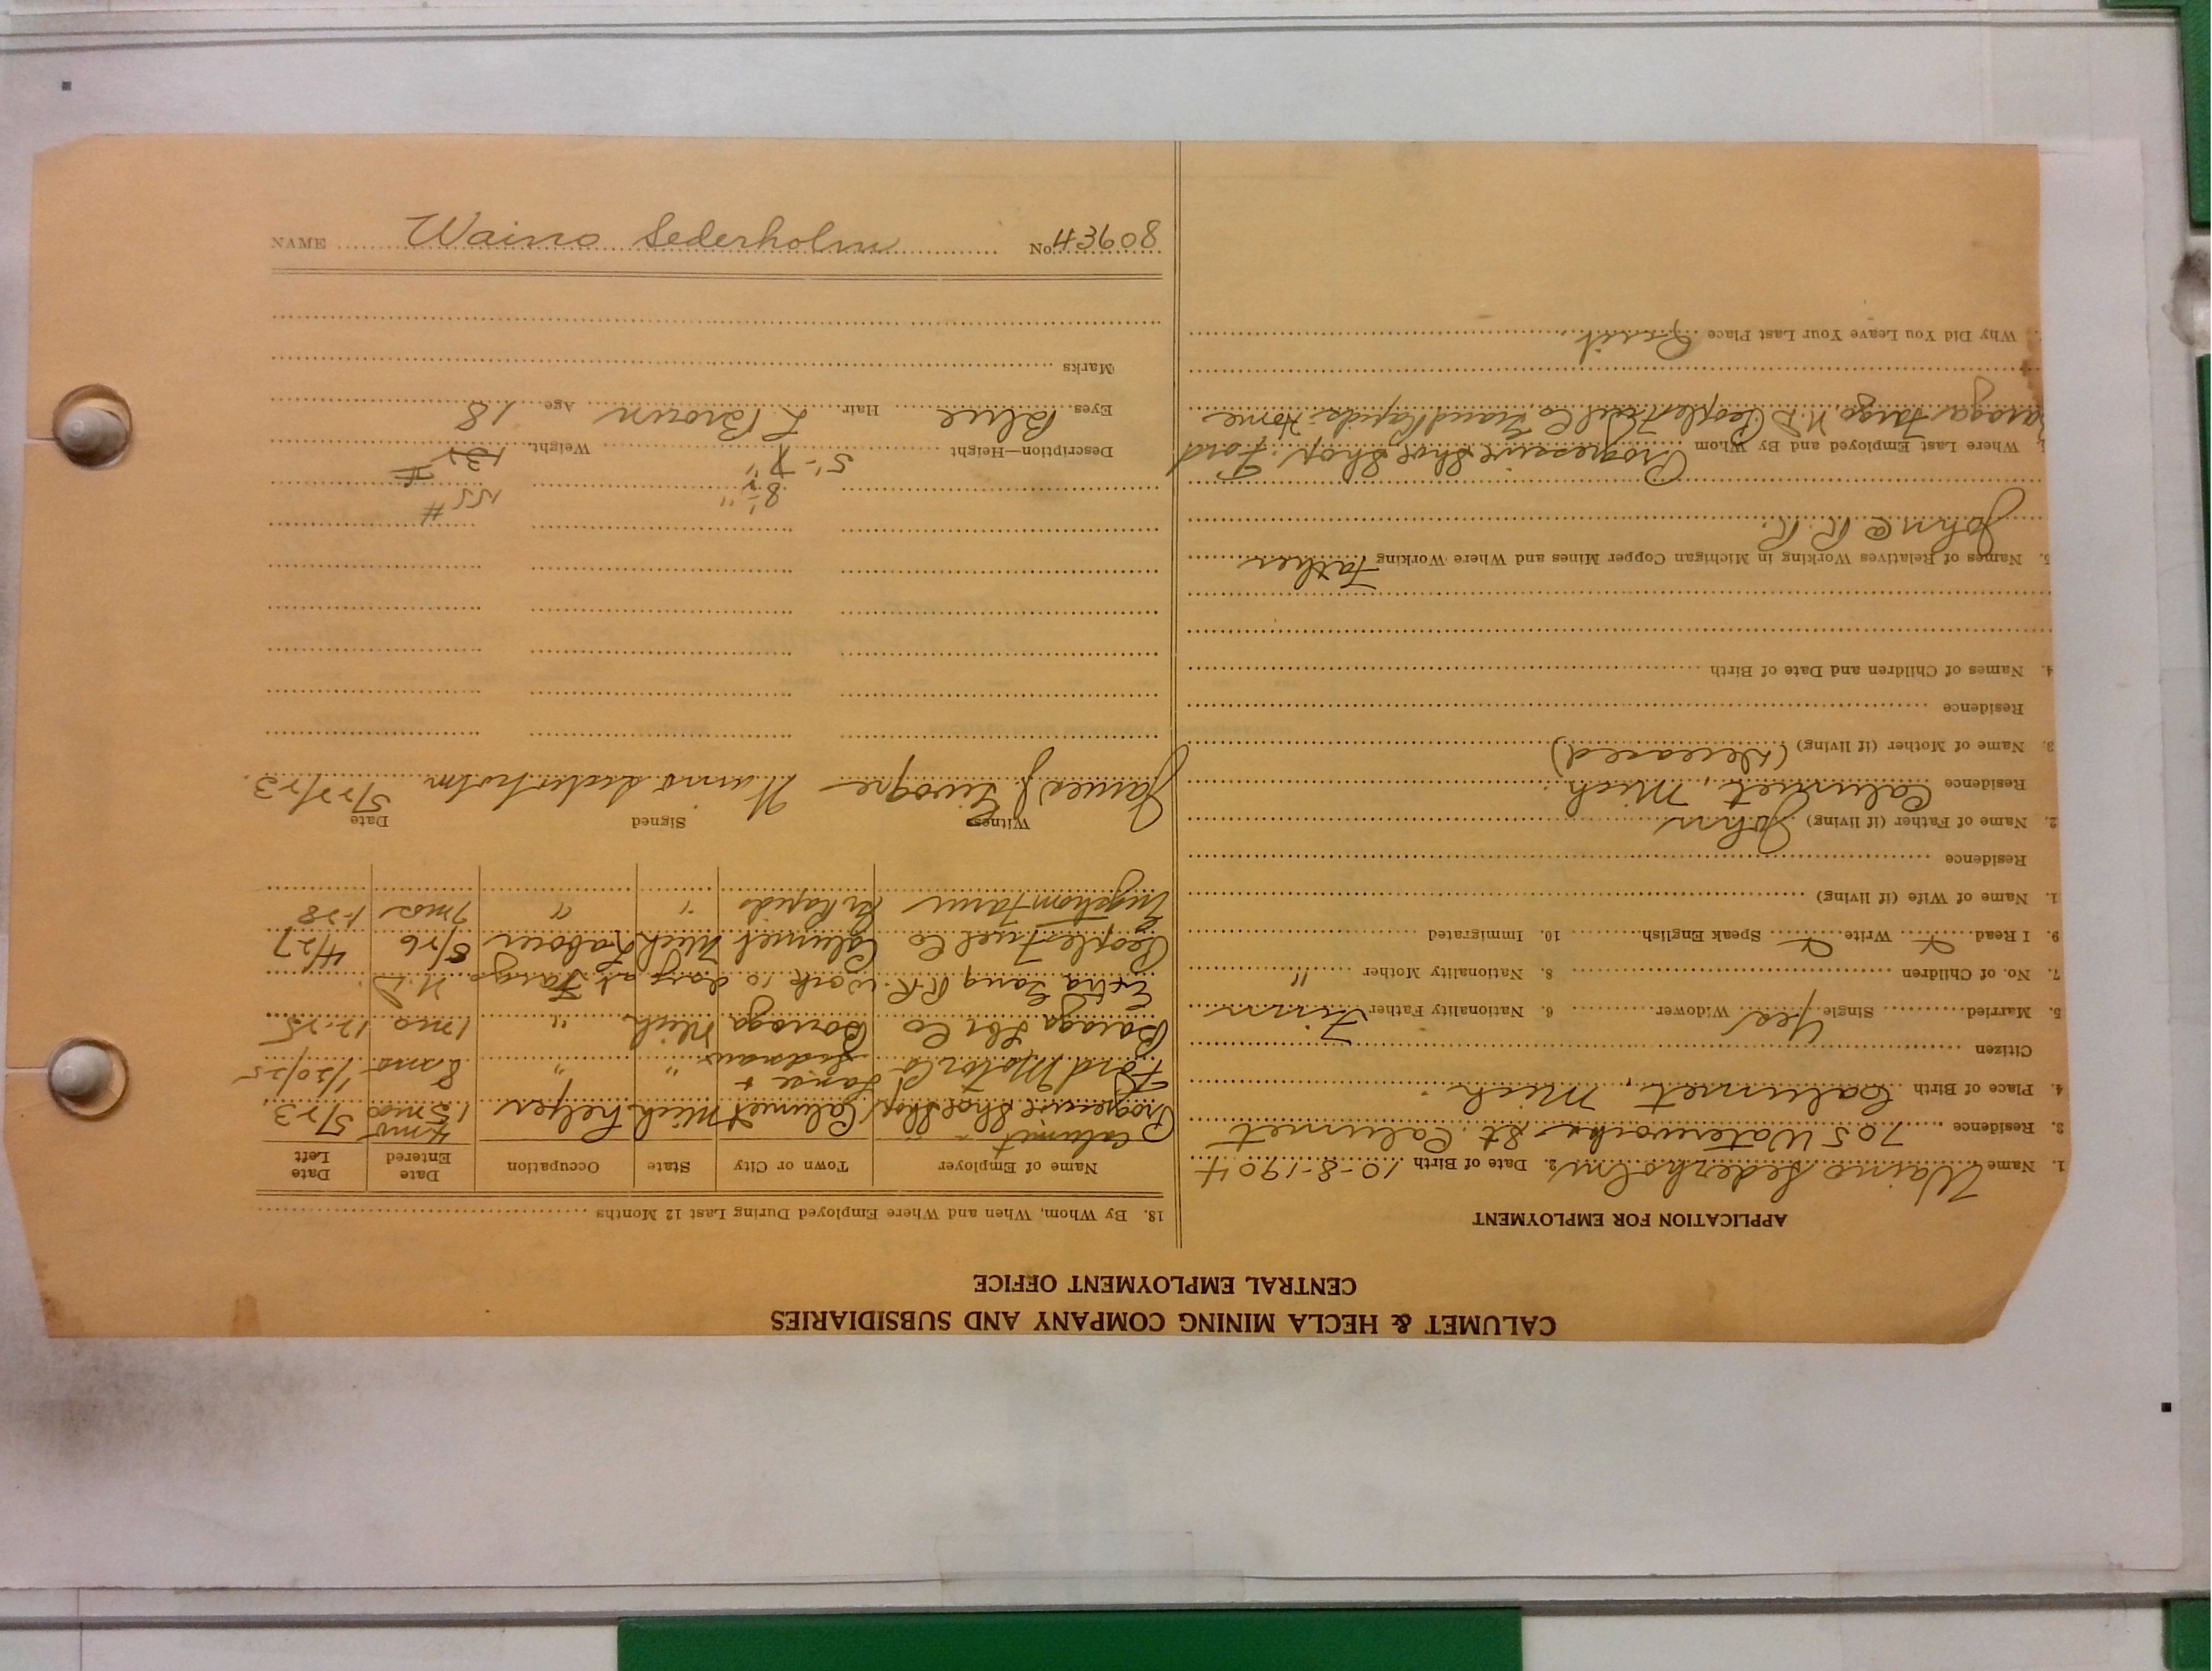 CALUMET & HECLA MINING COMPANY AND SUBSIDIARIES
CENTRAL EMPLOYMENT OFFICE
APPLICATION FOR EMPLOYMENT
1. Name Waino Sederholm 2. Date of Birth 10-8-1904
3. Residence 705 Waterworks St. Calumet
4. Place of Birth Calumet, Mich.
Citizen
5. Married Single Yes Widower 6. Nationality Father Finn
7. No. of Children 8. Nationality Mother "
9. I Read Write Speak English 10. Immigrated
1. Name of Wife (if living)
Residence
2. Name of Father (if living) John
Residence Calumet, Mich.
3. Name of Mother (if living) (Deceased)
Residence
4. Names of Children and Date of Birth
5. Names of Relatives Working in Michigan Copper Mines and Where Working Father
John @ R. R.
Where Last Employed and By Whom Progressive Shoe Shop, Ford
Baraga Fargo, N.D. Peoples Fuel Co, Grand Rapids, Home
Why Did You Leave Your Last Place Quit.
18. By Whom, When and Where Employed During Last 12 Months
Name of Employer Town or City State Occupation Date Entered Date Left
Calumet 4 mos
Progressive Shoe Shop Calumet Mich. helper 15 mos 5/23.
Ford Motor Co L'anse + " " 8 mos 1/20/25
Baraga Lbr Co Baraga Mich " 1 mo 12-25
Extra Gang R.R. work 10 days at Fargo N.D.
Peoples Fuel Co Calumet Mich Laborer 5/26 4/27
Gr Rapids " " 7 mos 1-28
Witness Signed Date
James J. Waino Sederholm 5/22/23.
155 #
8½"
Description—Height 5'-7" Weight 131 #
Eyes Blue Hair L Brown Age 18
Marks
NAME Waino Sederholm No. 43608